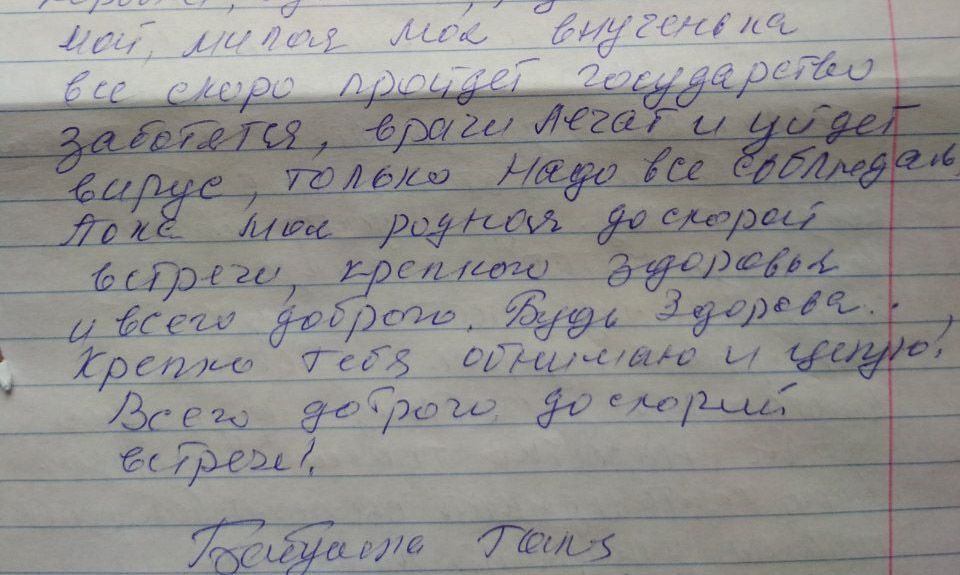 мой, милая моя внученька
все скоро пройдет государство
заботятся, врачи лечат и уйдет
вирус, только надо все соблюдать,
Пока моя родная до скорой
встречи, крепкого здоровья
и всего доброго. Будь Здорова.
Крепко тебя обнимаю и целую!
Всего доброго до скорой
встречи!
Бабушка Галя